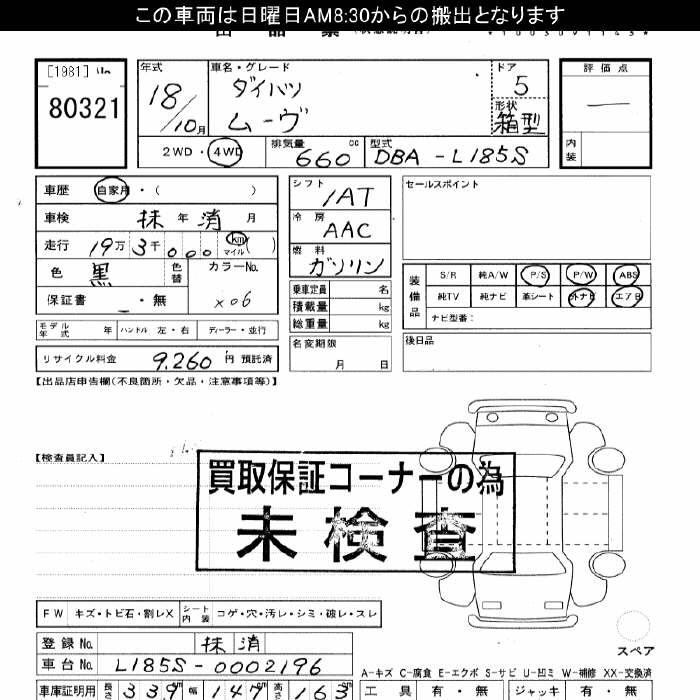 この車両は日曜日AM8:30からの搬出となります
[1981]
80321
年式 車名・グレード ドア 評価点
18/10月 ダイハツ 5
ムーヴ 形状 箱型 ー
2WD・4WD 排気量 660 cc 型式 DBA-L185S 内装
車歴 自家用・( )
車検 抹 年 消 月
走行 19万3千000 km マイル( )
色 黒 色替 カラーNo.
保証書 ・無 X06
モデル年式 年 ハンドル 左・右 ディーラー・並行
リサイクル料金 9.260円 預託済
シフト IAT
冷房 AAC
燃料 ガソリン
乗車定員 名
積載量 kg
総重量 kg
名変期限
月 日
セールスポイント
装備品 S/R 純A/W P/S P/W ABS
純TV 純ナビ 革シート 外ナビ エアB
ナビ型番:
後日品
【出品店申告欄(不良箇所・欠品・注意事項等)】
【検査員記入】
買取保証コーナーの為
未検査
FW キズ・トビ石・割レX シート内装 コゲ・穴・汚レ・シミ・破レ・スレ
登録No. 抹消
車台No. L185S-0002196
スペア
A-キズ C-腐食 E-エクボ S-サビ U-凹ミ W-補修 XX-交換済
車庫証明用 長さ 339 幅 147 高さ 163
工具 有・無 ジャッキ 有・無